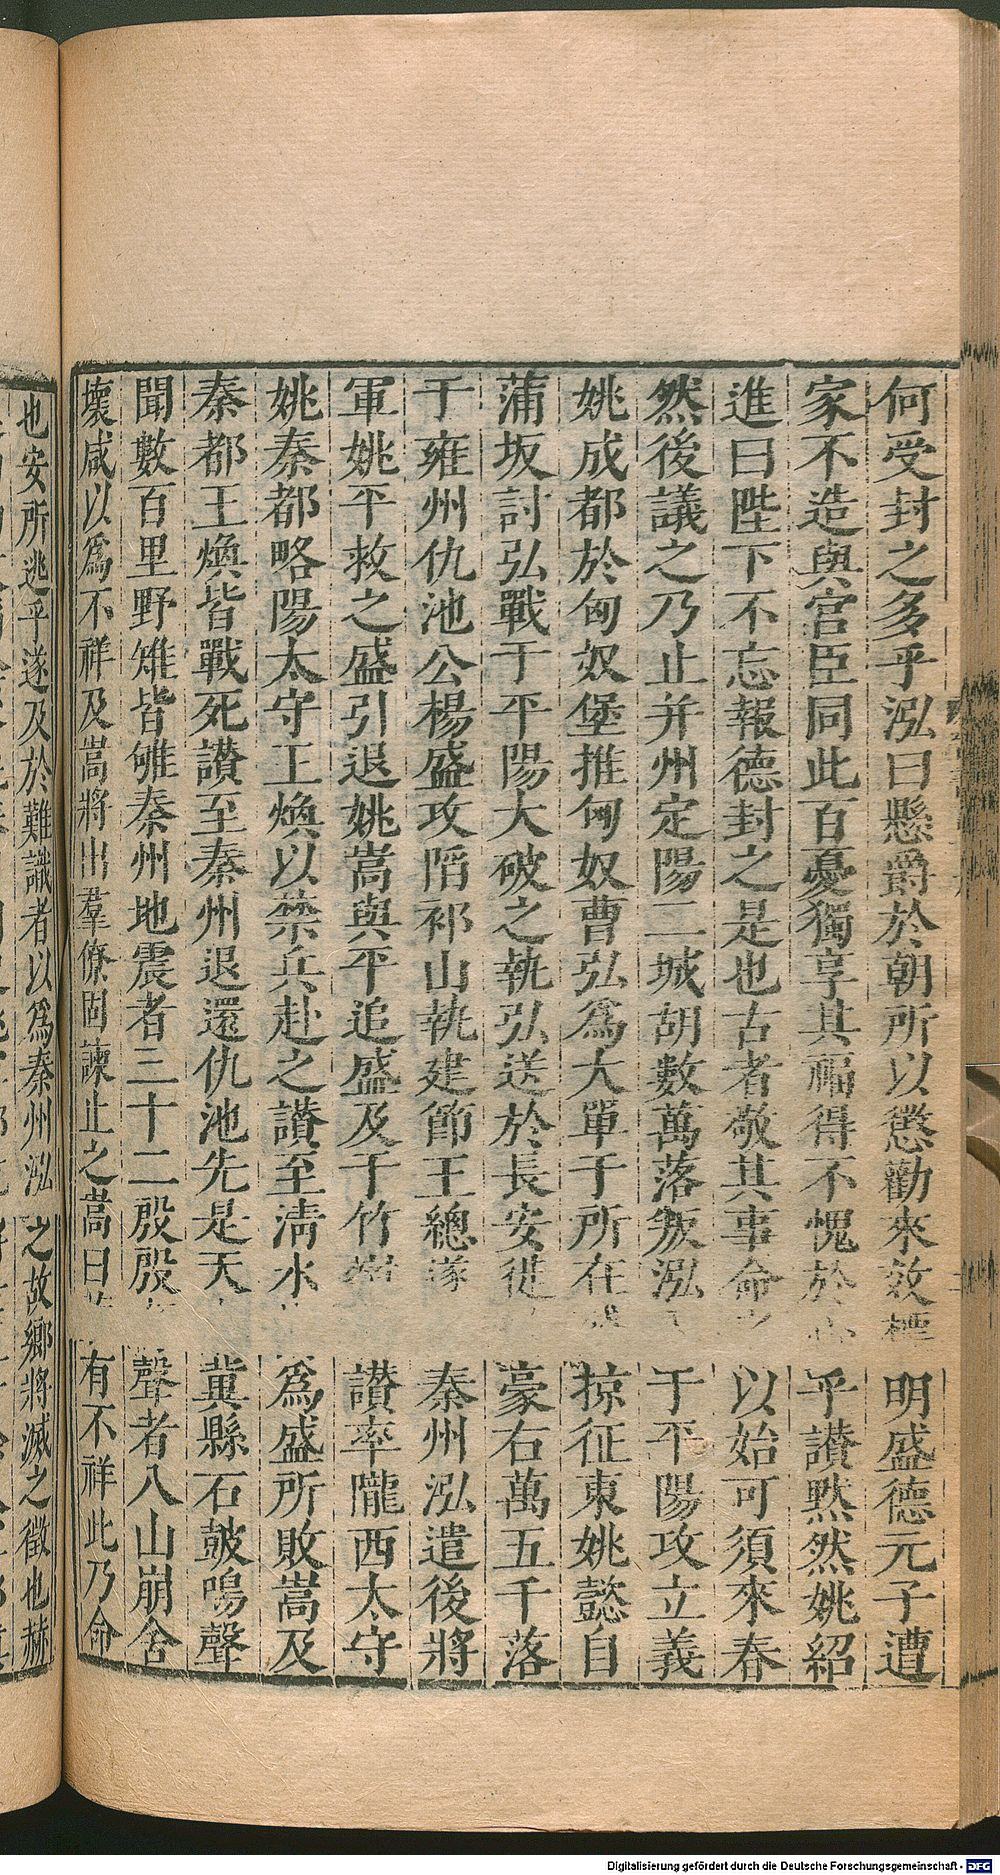 何受封之多乎泓曰懸爵於朝所以懲勸來效標明盛德元子遭
家不造與宮臣同此百憂獨享其福得不愧於心乎讚默然姚紹
進曰陛下不忘報德封之是也古者敬其事命之以始可須來春
然後議之乃止并州定陽二城胡數萬落叛泓入于平陽攻立義
姚成都於匈奴堡推匈奴曹弘爲大單于所在殘掠征東姚懿自
蒲坂討弘戰于平陽大破之執弘送於長安徙豪右萬五千落
于雍州仇池公楊盛攻陷祁山執建節王總遂秦州泓遣後將
軍姚平救之盛引退姚嵩與平追盛及于竹嶺讚率隴西太守
姚秦都略陽太守王煥以禁兵赴之讚至淸水爲盛所敗嵩及
秦都王煥皆戰死讚至秦州退還仇池先是天冀縣石鼓鳴聲
聞數百里野雉皆雊秦州地震者三十二殷殷聲者八山崩舍
壞咸以爲不祥及嵩將出羣僚固諫止之嵩曰有不祥此乃命
也安所逃乎遂及於難識者以爲秦州泓之故鄉將滅之徵也赫
Digitalisierung gefördert durch die Deutsche Forschungsgemeinschaft - DFG